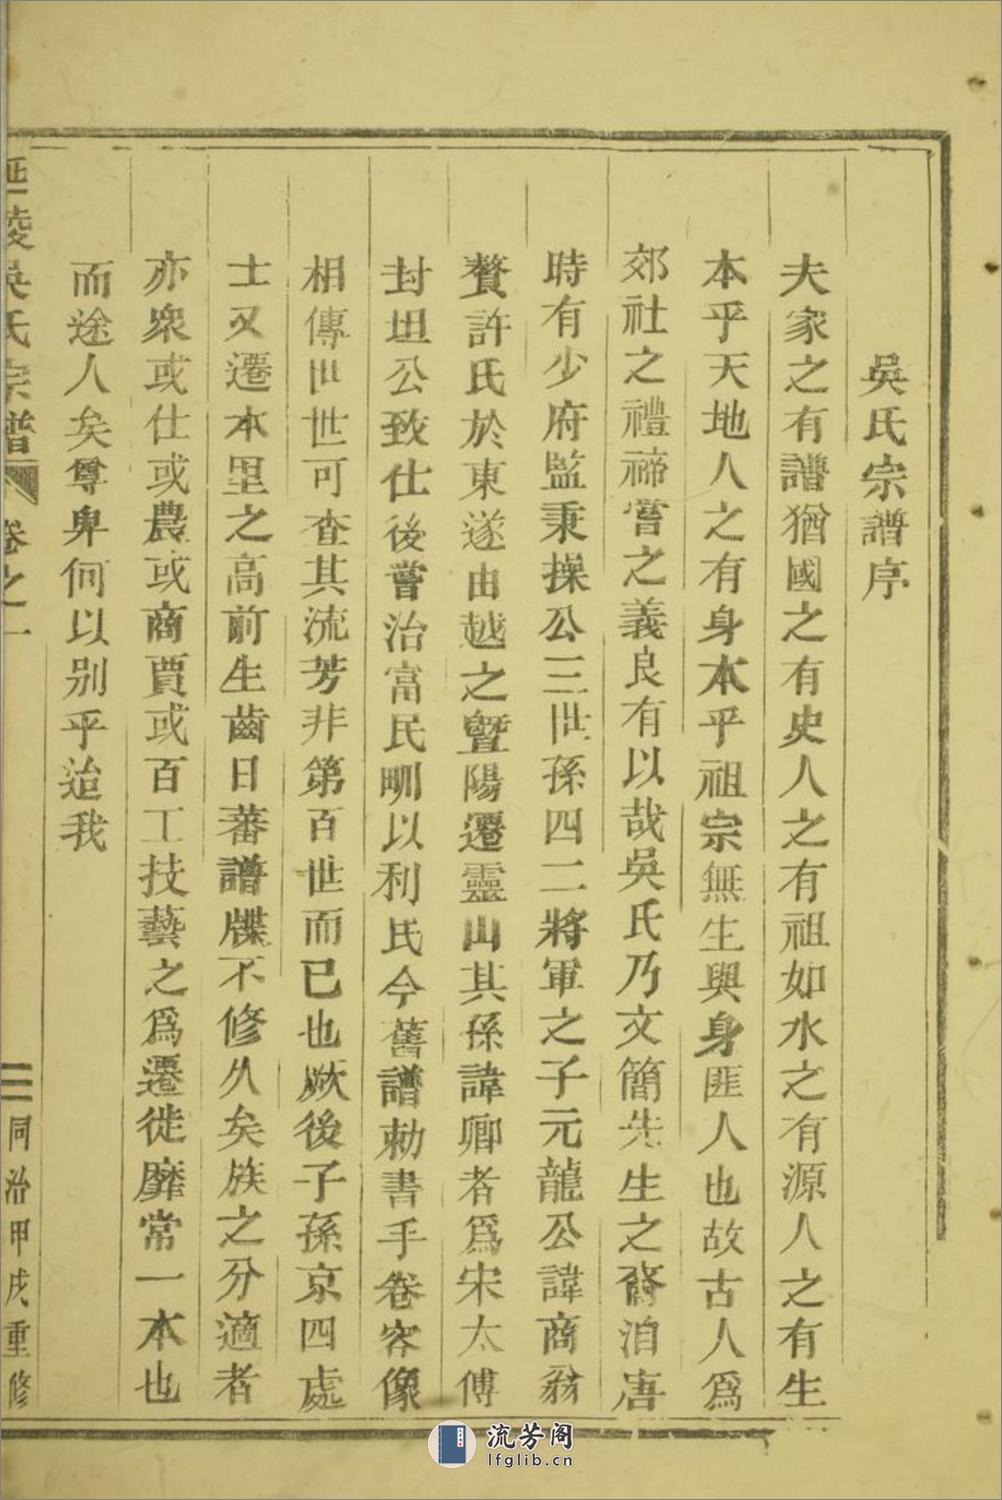 吳氏宗譜序
夫家之有譜猶國之有史人之有祖如水之有源人之有生
本乎天地人之有身本乎祖宗無生與身匪人也故古人爲
郊社之禮禘嘗之義良有以哉吳氏乃文簡先生之裔洎唐
時有少府監秉操公三世孫四二將軍之子元龍公諱商翁
贅許氏於東遂由越之暨陽遷靈山其孫諱卿者爲宋太傅
封坦公致仕後嘗治富民甽以利民今舊譜勅書手卷容像
相傳世世可查其流芳非第百世而已也厥後子孫京四處
士又遷本里之高前生齒日蕃譜牒不修久矣族之分適者
亦衆或仕或農或商賈或百工技藝之爲遷徙靡常一本也
而途人矣尊卑何以別乎迨我
延陵吳氏宗譜
卷之一
二
同治甲戌重修
流芳阁
lfglib.cn